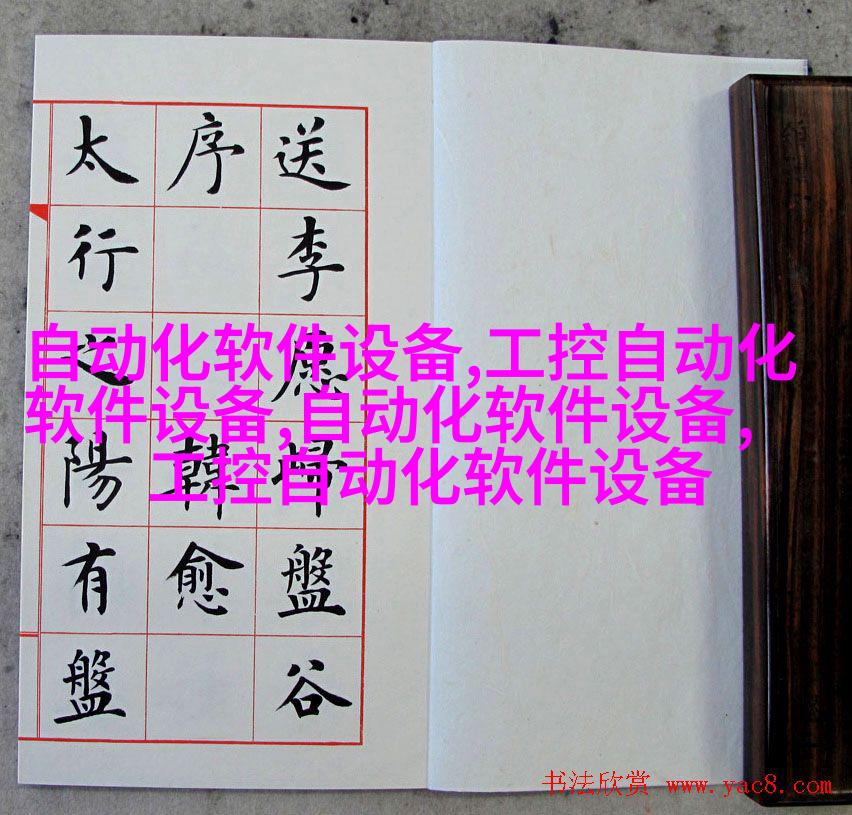 送李愿歸盤谷
序 韓愈
太行之陽有盤
自动化软件设备,工控自动化
软件设备,自动化软件设备,
工控自动化软件设备
书法欣赏 www.yac8.com